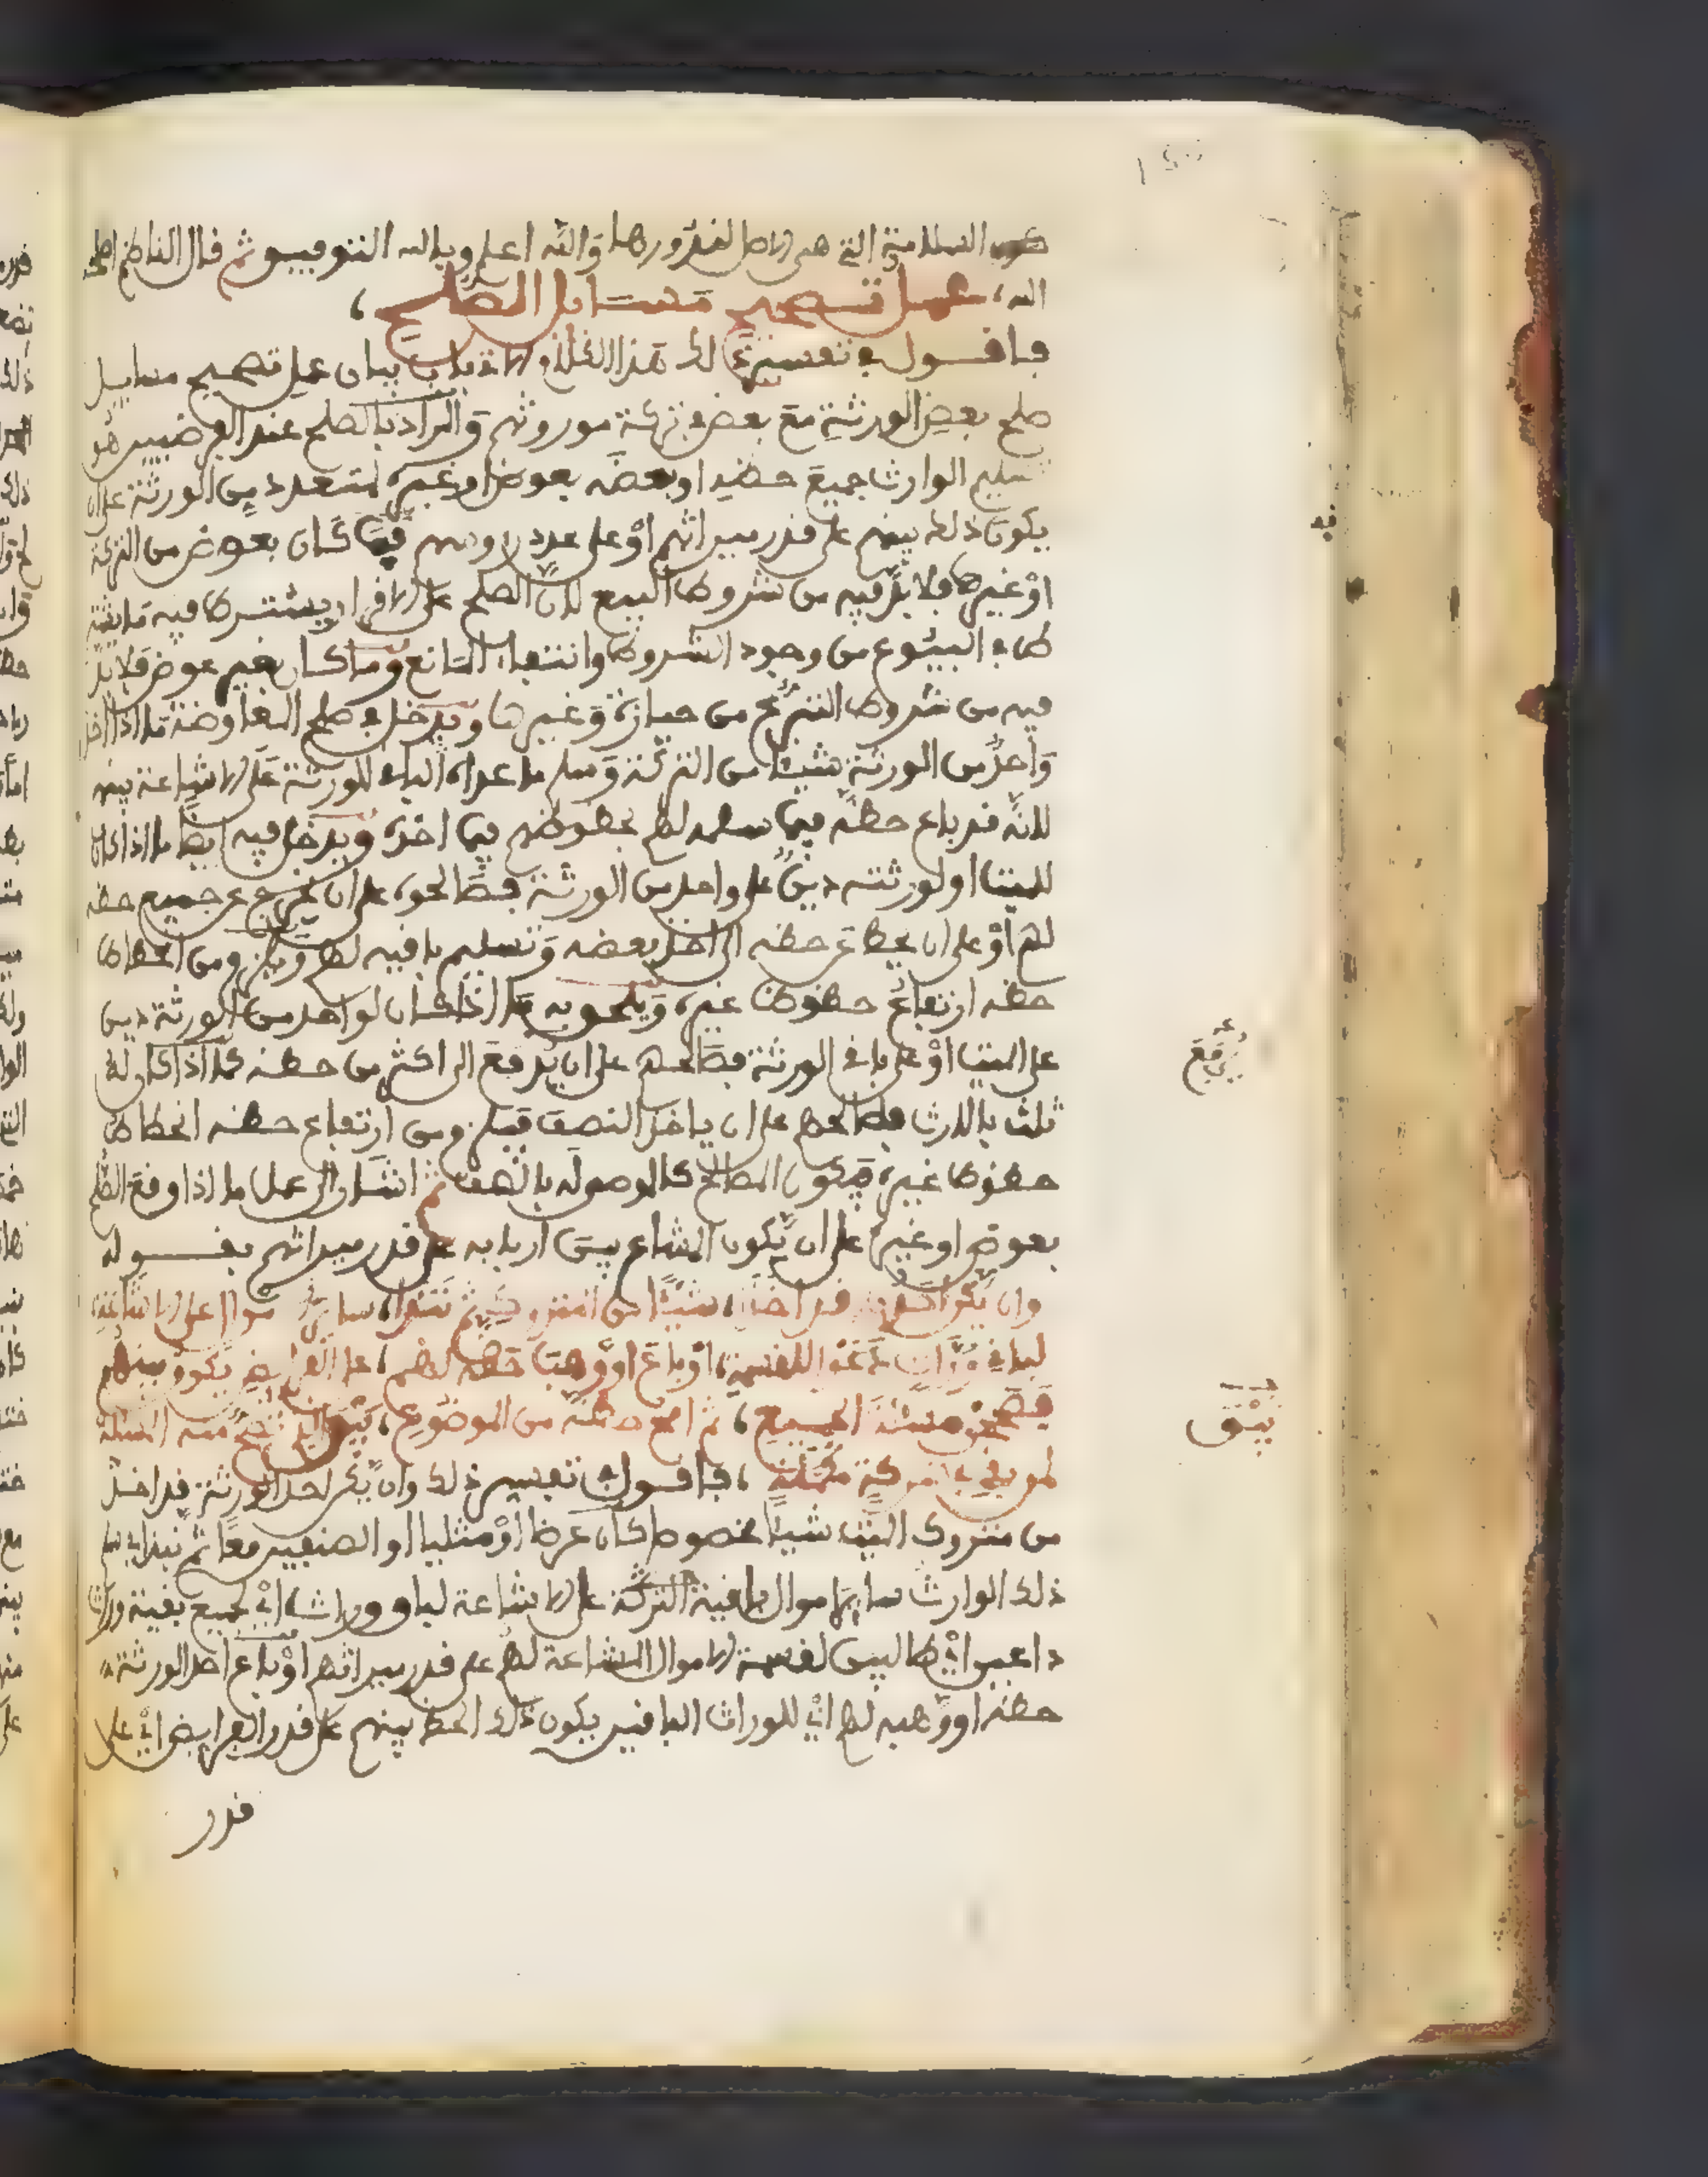 السلامة التي هي الاصل لغدورها والله اعلم وبالله التوفيق ثم قال الناظم اصلحه
الله، عمل تصحيح مسايل الصلح،
فاقول في تفسير ذلك هذا الفلاولاة باب بيان عمل تصحيح مسايل
صلح بعض الورثة مع بعض في تركة موروثهم والمراد بالصلح عند الفرضيين هو
تسليم الوارث جميع حظه او بعضه بعوض او غيره لمتعدد من الورثة على ان
يكون ذلك بينهم على قدر ميراثهم او على عدد روسهم فما كان بعوض من التركة
او غيرها فلا بد فيه من شروط البيع لان الصلح على الاقرار يشترط فيه ما يشتـ
ـرط في البيوع من وجود الشروط وانتفاء المانع وما كان بغير عوض فلا بد
فيه من شروط التبرع من حيازة وغيرها ويدخل في صلح المعاوضة ما اذا اخذ
واحد من الورثة شيئا من التركة وسلم ما عداه الباقي للورثة على الاشاعة بينهم
لانه قد باع حظه فيما سلمه لهم بحظوظهم فيما اخذه ويدخل فيه ايضا ما اذا كان
للميت او لورثته دين على واحد من الورثة فصالحوه على ان يخرج عن جميع حظه
لهم او على ان يحط عن حظه الى اخذ بعضه وتسليم باقيه لهم ويلزم من انحطاط
حظه ارتفاع حظوظ غيره ويلحق به ما اذا كان لواحد من الورثة دين
على الميت او على باقي الورثة فصالحهم على ان يدفع الى اكثر من حظه كما اذا كان له
ثلث بالارث فصالحهم على ان ياخذ النصف فيلزم من ارتفاع حظه انحطاط
حظوظ غيره فيكون المصالح كالموصى له بالنصف ثم اشار الى عمل ما اذا وقع الصلح
بعوض او غيره على ان يكون المشاع بين اربابه على قدر ميراثهم بقوله
وان يكن احدهم قد اخذا، شيئا من المتروك ثم نبذا، ساير الاموال على الاشاعة،
لباقي وراث دعوا للقسمة، او باع او وهب حظه لهم، على الفرايض يكون بينهم
فصحح مسئلة الجميع، ثم امح حظه من الموضوع، يبق الذي تصح منه المسئلة
لمن بقي في تركة مكملة، فاقول في تفسير ذلك وان يكن احد الورثة قد اخذ
من متروك الميت شيئا مخصوصا كان عرضا او مثليا او الصنفين معا ثم نبذ اي سلم
ذلك الوارث ساير الاموال باقية التركة على الاشاعة لباقي وراث اي لجميع بقية وراث
داعين اي طالبين لقسمة الاموال المشاعة لهم على قدر ميراثهم او باع احد الورثة
حظه او وهبه لهم اي للوراث الباقين يكون ذلك الحظ بينهم على قدر الفرايض اي على
قدر
فيه
يرفع
يبق